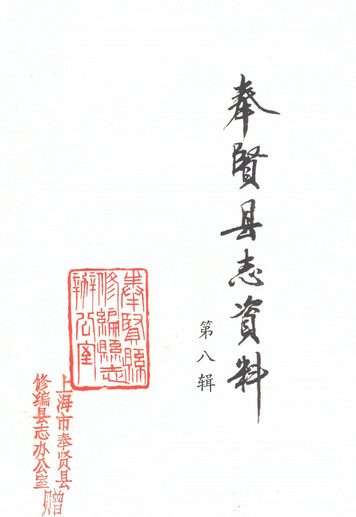 奉贤县志资料
第八辑
奉賢縣
修編縣志
辦公室
上海市奉贤县
修编县志办公室赠